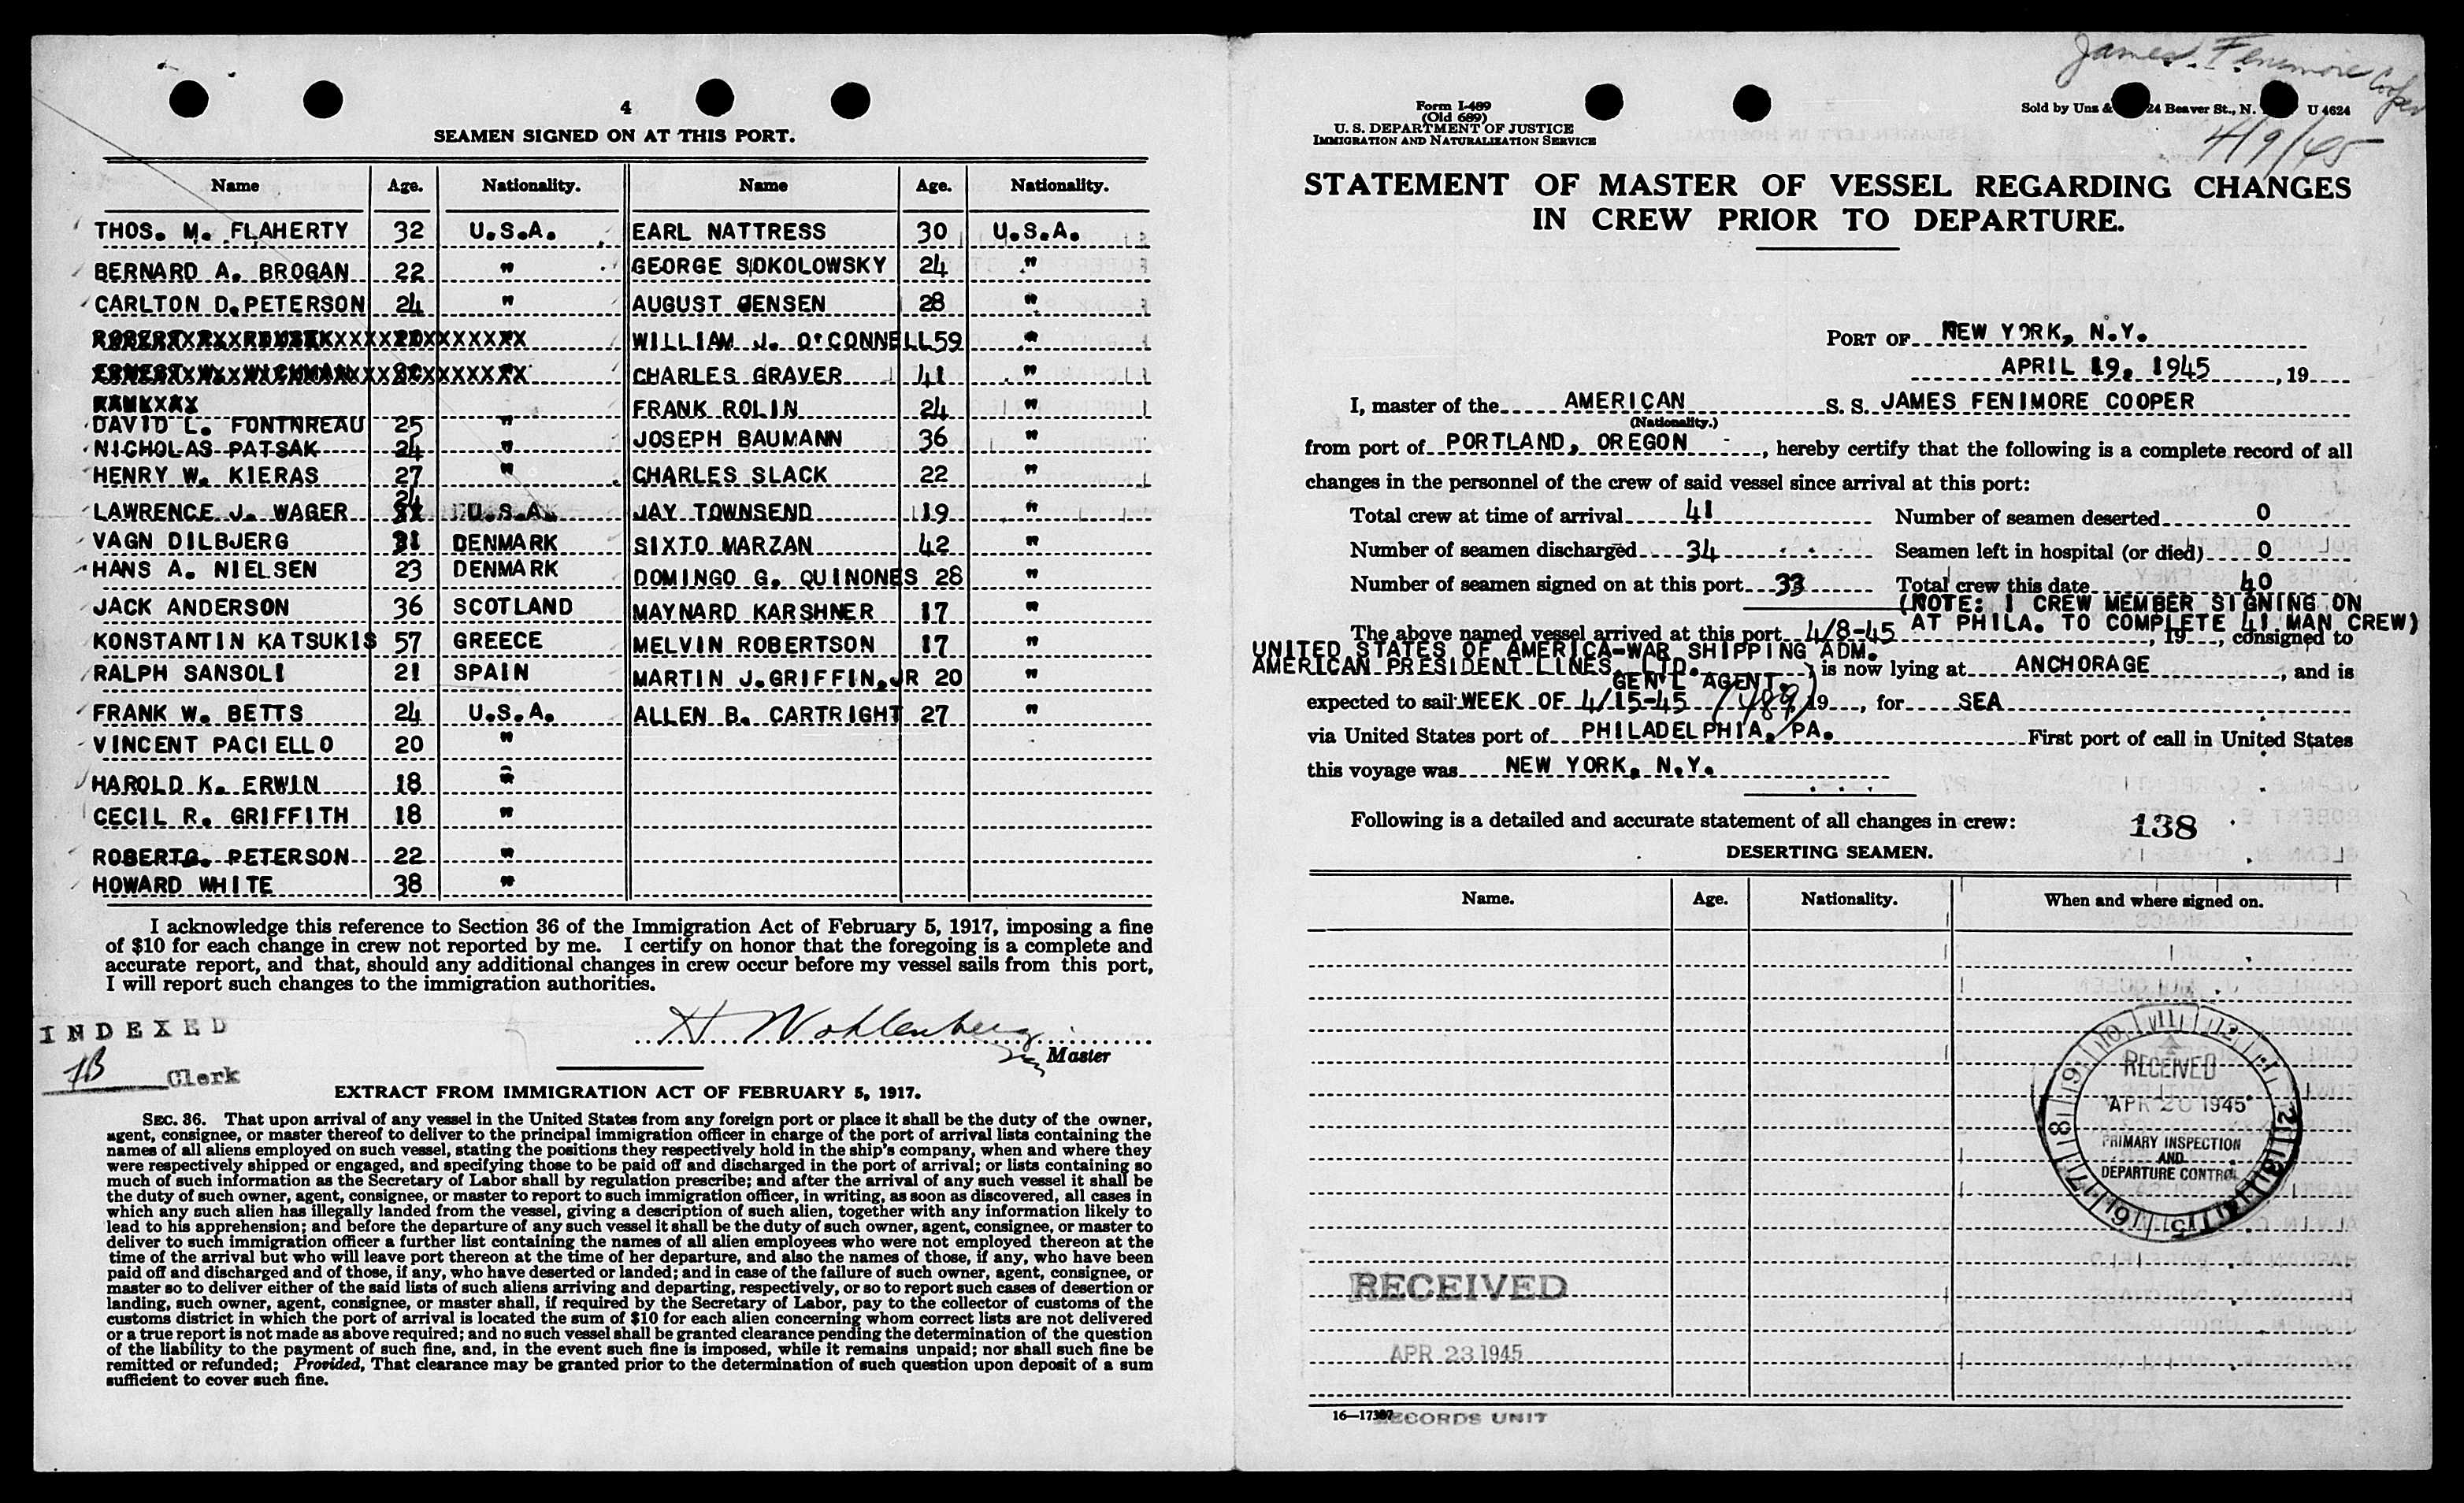 4
SEAMEN SIGNED ON AT THIS PORT.
Name Age. Nationality. Name Age. Nationality.
THOS. M. FLAHERTY 32 U.S.A. EARL NATTRESS 30 U.S.A.
BERNARD A. BROGAN 22 " GEORGE SOKOLOWSKY 24 "
CARLTON D. PETERSON 24 " AUGUST JENSEN 28 "
WILLIAM J. O'CONNELL 59 "
CHARLES GRAVER 41 "
FRANK ROLIN 24 "
DAVID L. FONTNREAU 25 "
JOSEPH BAUMANN 36 "
NICHOLAS PATSAK 24 "
HENRY W. KIERAS 27 " CHARLES SLACK 22 "
LAWRENCE J. WAGER 24 U.S.A. JAY TOWNSEND 19 "
VAGN DILBJERG 31 DENMARK SIXTO MARZAN 42 "
HANS A. NIELSEN 23 DENMARK DOMINGO G. QUINONES 28 "
JACK ANDERSON 36 SCOTLAND MAYNARD KARSHNER 17 "
KONSTANTIN KATSUKIS 57 GREECE MELVIN ROBERTSON 17 "
RALPH SANSOLI 21 SPAIN MARTIN J. GRIFFIN. JR 20 "
FRANK W. BETTS 24 U.S.A. ALLEN B. CARTRIGHT 27 "
VINCENT PACIELLO 20 "
HAROLD K. ERWIN 18 "
CECIL R. GRIFFITH 18 "
ROBERT G. PETERSON 22 "
HOWARD WHITE 38 "
I acknowledge this reference to Section 36 of the Immigration Act of February 5, 1917, imposing a fine
of $10 for each change in crew not reported by me. I certify on honor that the foregoing is a complete and
accurate report, and that, should any additional changes in crew occur before my vessel sails from this port,
I will report such changes to the immigration authorities.
INDEXED
H Wohlenberg
Master
Clerk
EXTRACT FROM IMMIGRATION ACT OF FEBRUARY 5, 1917.
SEC. 36. That upon arrival of any vessel in the United States from any foreign port or place it shall be the duty of the owner,
agent, consignee, or master thereof to deliver to the principal immigration officer in charge of the port of arrival lists containing the
names of all aliens employed on such vessel, stating the positions they respectively hold in the ship's company, when and where they
were respectively shipped or engaged, and specifying those to be paid off and discharged in the port of arrival; or lists containing so
much of such information as the Secretary of Labor shall by regulation prescribe; and after the arrival of any such vessel it shall be
the duty of such owner, agent, consignee, or master to report to such immigration officer, in writing, as soon as discovered, all cases in
which any such alien has illegally landed from the vessel, giving a description of such alien, together with any information likely to
lead to his apprehension; and before the departure of any such vessel it shall be the duty of such owner, agent, consignee, or master to
deliver to such immigration officer a further list containing the names of all alien employees who were not employed thereon at the
time of the arrival but who will leave port thereon at the time of her departure, and also the names of those, if any, who have been
paid off and discharged and of those, if any, who have deserted or landed; and in case of the failure of such owner, agent, consignee, or
master so to deliver either of the said lists of such aliens arriving and departing, respectively, or so to report such cases of desertion or
landing, such owner, agent, consignee, or master shall, if required by the Secretary of Labor, pay to the collector of customs of the
customs district in which the port of arrival is located the sum of $10 for each alien concerning whom correct lists are not delivered
or a true report is not made as above required; and no such vessel shall be granted clearance pending the determination of the question
of the liability to the payment of such fine, and, in the event such fine is imposed, while it remains unpaid; nor shall such fine be
remitted or refunded; Provided, That clearance may be granted prior to the determination of such question upon deposit of a sum
sufficient to cover such fine.
James Fenimore Cooper
4/9/45
Form I-489
(Old 689)
U. S. DEPARTMENT OF JUSTICE
IMMIGRATION AND NATURALIZATION SERVICE
Sold by Unz & 24 Beaver St., N. U 4624
STATEMENT OF MASTER OF VESSEL REGARDING CHANGES
IN CREW PRIOR TO DEPARTURE.
PORT OF NEW YORK, N.Y.
APRIL 19, 1945, 19
I, master of the AMERICAN S. S. JAMES FENIMORE COOPER
(Nationality.)
from port of PORTLAND, OREGON, hereby certify that the following is a complete record of all
changes in the personnel of the crew of said vessel since arrival at this port:
Total crew at time of arrival 41 Number of seamen deserted 0
Number of seamen discharged 34 Seamen left in hospital (or died) 0
Number of seamen signed on at this port 33 Total crew this date 40
(NOTE: 1 CREW MEMBER SIGNING ON
AT PHILA. TO COMPLETE 41 MAN CREW)
The above named vessel arrived at this port 4/8-45, 19, consigned to
UNITED STATES OF AMERICA-WAR SHIPPING ADM.
AMERICAN PRESIDENT LINES, LTD. is now lying at ANCHORAGE, and is
GEN'L AGENT
expected to sail WEEK OF 4/15-45 (489) 19, for SEA
via United States port of PHILADELPHIA, PA. First port of call in United States
this voyage was NEW YORK, N.Y.
Following is a detailed and accurate statement of all changes in crew:
138
DESERTING SEAMEN.
Name. Age. Nationality. When and where signed on.
RECEIVED
APR 20 1945
PRIMARY INSPECTION
AND
DEPARTURE CONTROL
RECEIVED
APR 23 1945
RECORDS UNIT